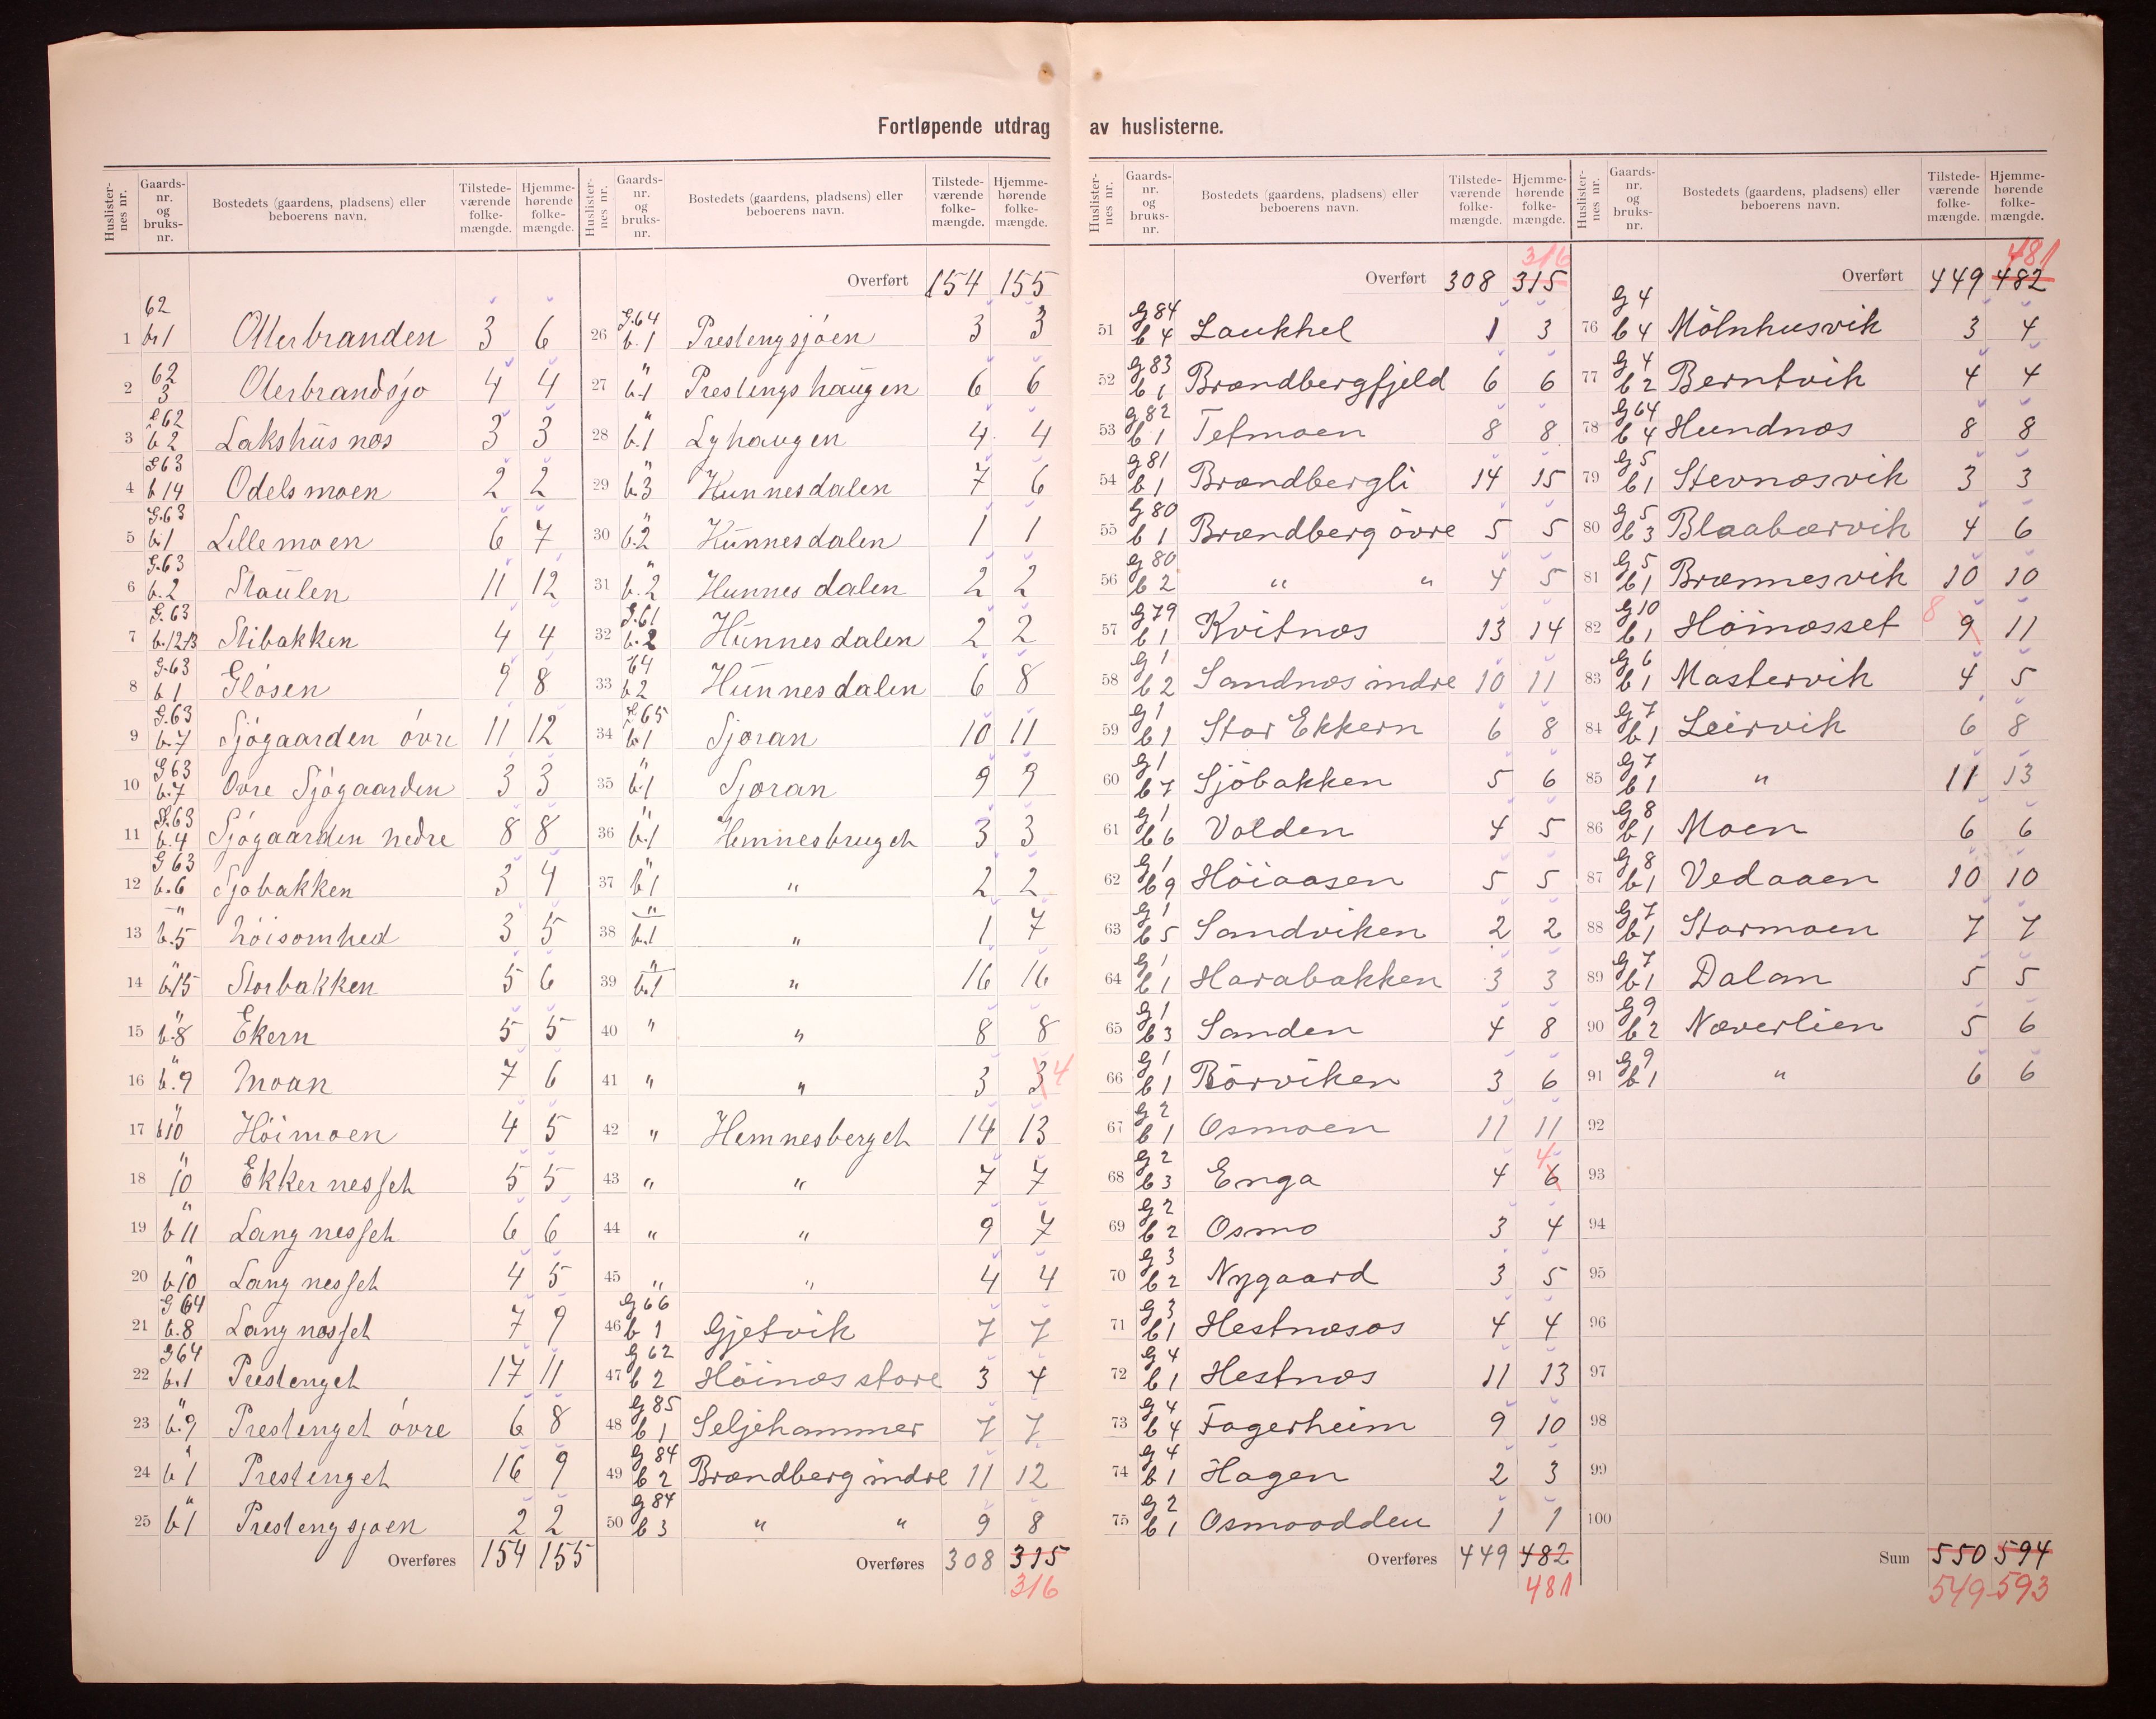 Fortløpende utdrag av huslisterne.
Huslister-nes nr. Gaards-nr. og bruks-nr. Bostedets (gaardens, pladsens) eller beboerens navn. Tilstede-værende folke-mængde. Hjemme-hørende folke-mængde.
1 62 b.1 Oterbranden 3 6
2 62 3 Oterbrandsjo 4 4
3 G 62 b 2 Lakshusnæs 3 3
4 G 63 b 14 Odelsmoen 2 2
5 G.63 b.1 Lillemoen 6 7
6 G.63 b.2 Staulen 11 12
7 G.63 b.12.13 Stibakken 4 4
8 G.63 b 1 Glosen 9 8
9 G.63 b.7 Sjøgaarden övre 11 12
10 G 63 b.7 Övre Sjøgaarden 3 3
11 G.63 b.4 Sjøgaarden nedre 8 8
12 G 63 b.6 Sjobakken 3 4
13 " b.5 Nöisomhed 3 5
14 " b.15 Storbakken 5 6
15 " b.8 Ekern 5 5
16 " b.9 Moan 7 6
17 " b10 Höimoen 4 5
18 " 10 Ekkernesset 5 5
19 " b 11 Langnesset 6 6
20 " b 10 Langnesset 4 5
21 G 64 b.8 Langnesset 7 9
22 G 64 b.1 Prestenget 17 11
23 " b.9 Prestenget övre 6 8
24 " b 1 Prestenget 16 9
25 " b 1 Prestengsjoen 2 2
Overføres 154 155
Huslister-nes nr. Gaards-nr. og bruks-nr. Bostedets (gaardens, pladsens) eller beboerens navn. Tilstede-værende folke-mængde. Hjemme-hørende folke-mængde.
Overført 154 155
26 G.64 b.1 Prestengsjöen 3 3
27 " b.1 Prestengshaugen 6 6
28 " b.1 Lyhaugen 4 4
29 " b.3 Hunnesdalen 7 6
30 " b.2 Hunnesdalen 1 1
31 " b.2 Hunnesdalen 2 2
32 G.61 b.2 Hunnesdalen 2 2
33 64 b 2 Hunnesdalen 6 8
34 G 65 b.1 Sjøran 10 11
35 " b.1 Sjøran 9 9
36 " b.1 Hemnesbruget 3 3
37 " b 1 " 2 2
38 " b.1 " 1 7
39 " b.1 " 16 16
40 " " 8 8
41 " " 3 3 4
42 " Hemnesberget 14 13
43 " " 7 7
44 " " 9 7
45 " " 4 4
46 G 66 b 1 Gjetvik 7 7
47 G 62 b 2 Höinæs store 3 4
48 G 85 b 1 Seljehammer 7 7
49 G 84 b 2 Brændberg indre 11 12
50 G 84 b 3 " " 9 8
Overføres 308 315
316
Huslister-nes nr. Gaards-nr. og bruks-nr. Bostedets (gaardens, pladsens) eller beboerens navn. Tilstede-værende folke-mængde. Hjemme-hørende folke-mængde.
316
Overført 308 315
51 G 84 b 4 Laukhel 1 3
52 G 83 b 1 Brændbergfjeld 6 6
53 G 82 b 1 Tetmoen 8 8
54 G 81 b 1 Brændbergli 14 15
55 G 80 b 1 Brændberg övre 5 5
56 G 80 b 2 " " 4 5
57 G 79 b 1 Kvitnæs 13 14
58 G 1 b 2 Sandnæs indre 10 11
59 G 1 b 1 Stor Ekkern 6 8
60 G 1 b 7 Sjöbakken 5 6
61 G 1 b 6 Volden 4 5
62 G 1 b 9 Höiaasen 5 5
63 G 1 b 5 Sandviken 2 2
64 G 1 b 1 Harabakken 3 3
65 G 1 b 3 Sanden 4 8
66 G 1 b 1 Rörviken 3 6
67 G 2 b 1 Osmoen 11 11
68 G 2 b 3 Enga 4 6 4
69 G 2 b 2 Osmo 3 4
70 G 3 b 2 Nygaard 3 5
71 G 3 b 1 Hestnæsøs 4 4
72 G 4 b 1 Hestnæs 11 13
73 G 4 b 4 Fagerheim 9 10
74 G 4 b 1 Hagen 2 3
75 G 2 b 1 Osmoodden 1 1
Overføres 449 482
481
Huslister-nes nr. Gaards-nr. og bruks-nr. Bostedets (gaardens, pladsens) eller beboerens navn. Tilstede-værende folke-mængde. Hjemme-hørende folke-mængde.
481
Overført 449 482
76 G 4 b 4 Mölnhusvik 3 4
77 G 4 b 2 Berntvik 4 4
78 G 64 b 4 Hundnæs 8 8
79 G 5 b 1 Stevnæsvik 3 3
80 G 5 b 3 Blaabærvik 4 6
81 G 5 b 1 Brænnesvik 10 10
82 G 10 b 1 Höinæsset 8 9 11
83 G 6 b 1 Mastervik 4 5
84 G 7 b 1 Leirvik 6 8
85 G 7 b 1 " 11 13
86 G 8 b 1 Moen 6 6
87 G 8 b 1 Vedaaen 10 10
88 G 7 b 1 Stormoen 7 7
89 G 7 b 1 Dalan 5 5
90 G 9 b 2 Næverlien 5 6
91 G 9 b 1 " 6 6
92
93
94
95
96
97
98
99
100
Sum 550 594
549 593